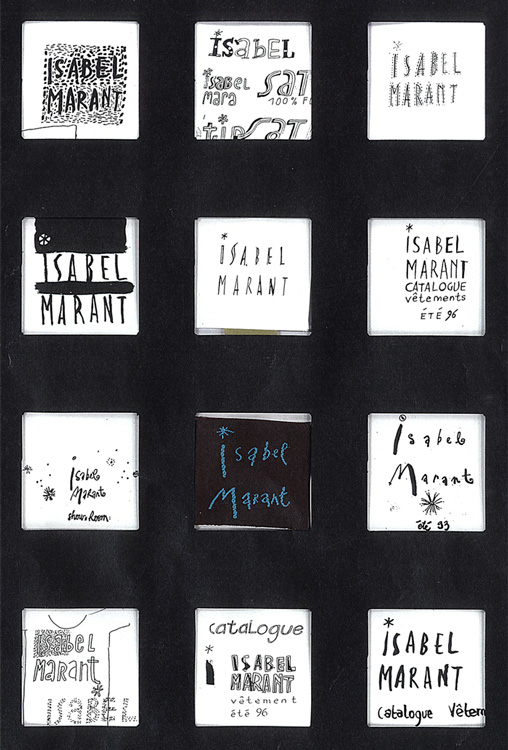 ISABEL
MARANT
isabel
isabel
mara
SAT
100% F
tip
SAT
ISABEL
MARANT
ISABEL
MARANT
iSABEL
MARANT
iSABEL
MARANT
CATALOGUE
vêtements
ÉTÉ 96
isabel
Marant
showroom
isabel
Marant
isabel
Marant
été 93
isabel
marant
isabel
catalogue
ISABEL
MARANT
vêtement
été 96
iSABEL
MARANT
catalogue vêtem